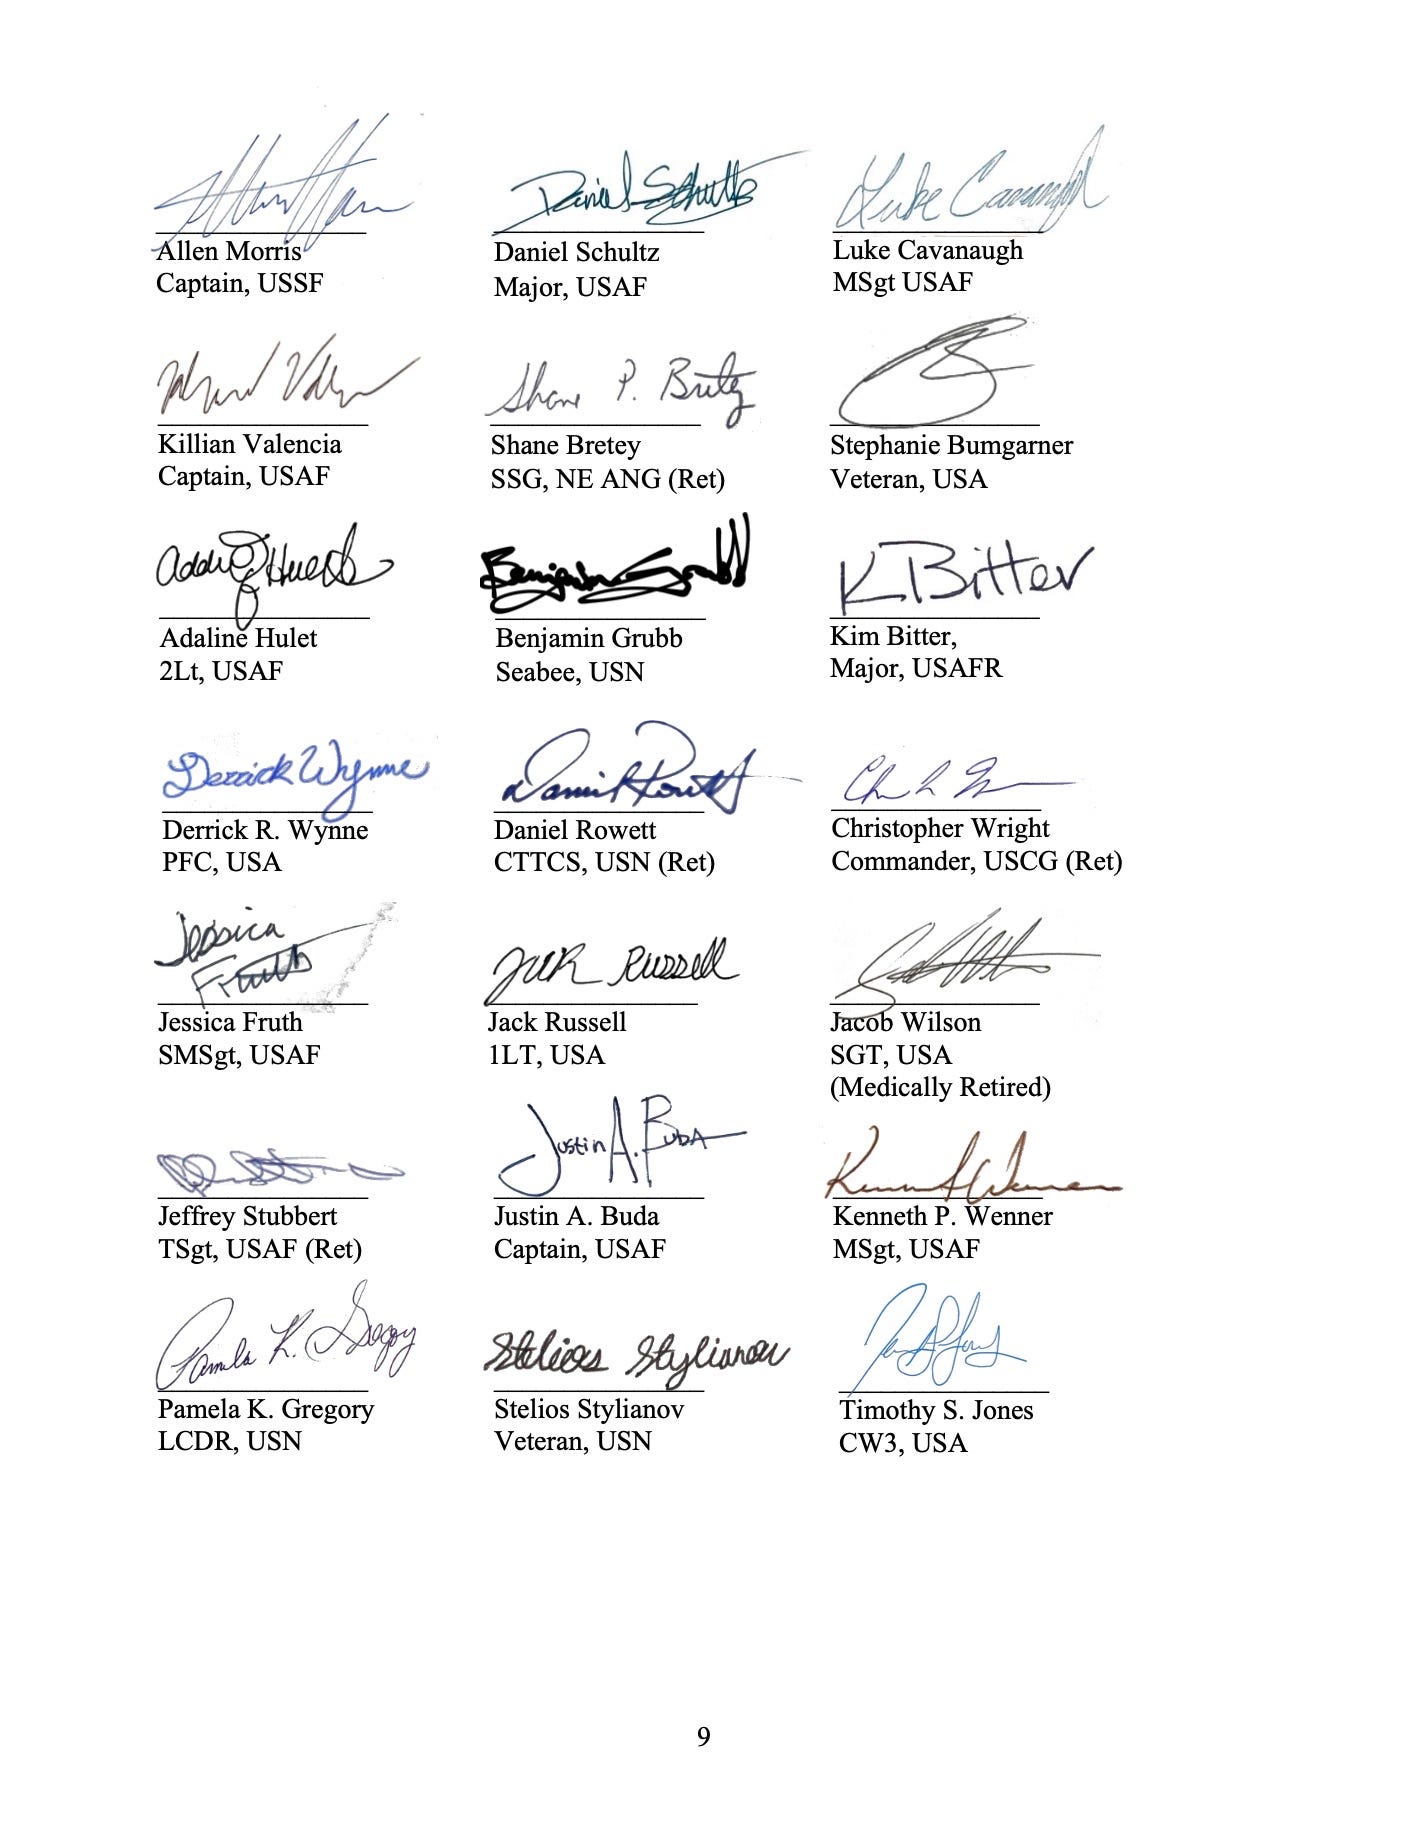 Daniel Schultz
Luke Cavanaugh
Allen Morris
Captain, USSF
Daniel Schultz
Major, USAF
Luke Cavanaugh
MSgt USAF
Shane P. Bretey
Killian Valencia
Captain, USAF
Shane Bretey
SSG, NE ANG (Ret)
Stephanie Bumgarner
Veteran, USA
Benjamin Grubb
K Bitter
Adaline Hulet
2Lt, USAF
Benjamin Grubb
Seabee, USN
Kim Bitter,
Major, USAFR
Derrick Wynne
Daniel Rowett
Derrick R. Wynne
PFC, USA
Daniel Rowett
CTTCS, USN (Ret)
Christopher Wright
Commander, USCG (Ret)
Jessica
Fruth
Jack Russell
Jessica Fruth
SMSgt, USAF
Jack Russell
1LT, USA
Jacob Wilson
SGT, USA
(Medically Retired)
Justin A. Buda
Jeffrey Stubbert
TSgt, USAF (Ret)
Justin A. Buda
Captain, USAF
Kenneth P. Wenner
MSgt, USAF
Pamela K. Gregory
Stelios Stylianov
Pamela K. Gregory
LCDR, USN
Stelios Stylianov
Veteran, USN
Timothy S. Jones
CW3, USA
9